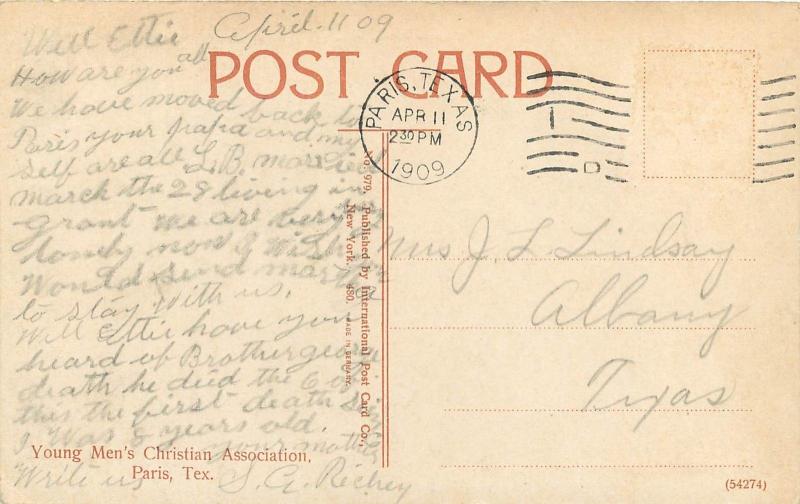 April. 11 09
Well Ettie
How are you all
We have moved back to
Paris your papa and my
self are all L.B. married
march the 28 living in
grant we are very
lonely now I wish you
Would send martha
to stay With us.
Well Ettie have you
heard of Brother george
death he died the 6 of
this the first death sin
I Was 8 years old.
your mother
Write us S. A. Richey
POST CARD
PARIS, TEXAS
APR 11
2 30 PM
1909
1
D
No. 979. Published by International Post Card Co.,
New York. 680. MADE IN GERMANY.
Mrs J. L. Lindsay
Albany
Texas
Young Men's Christian Association,
Paris, Tex.
(54274)